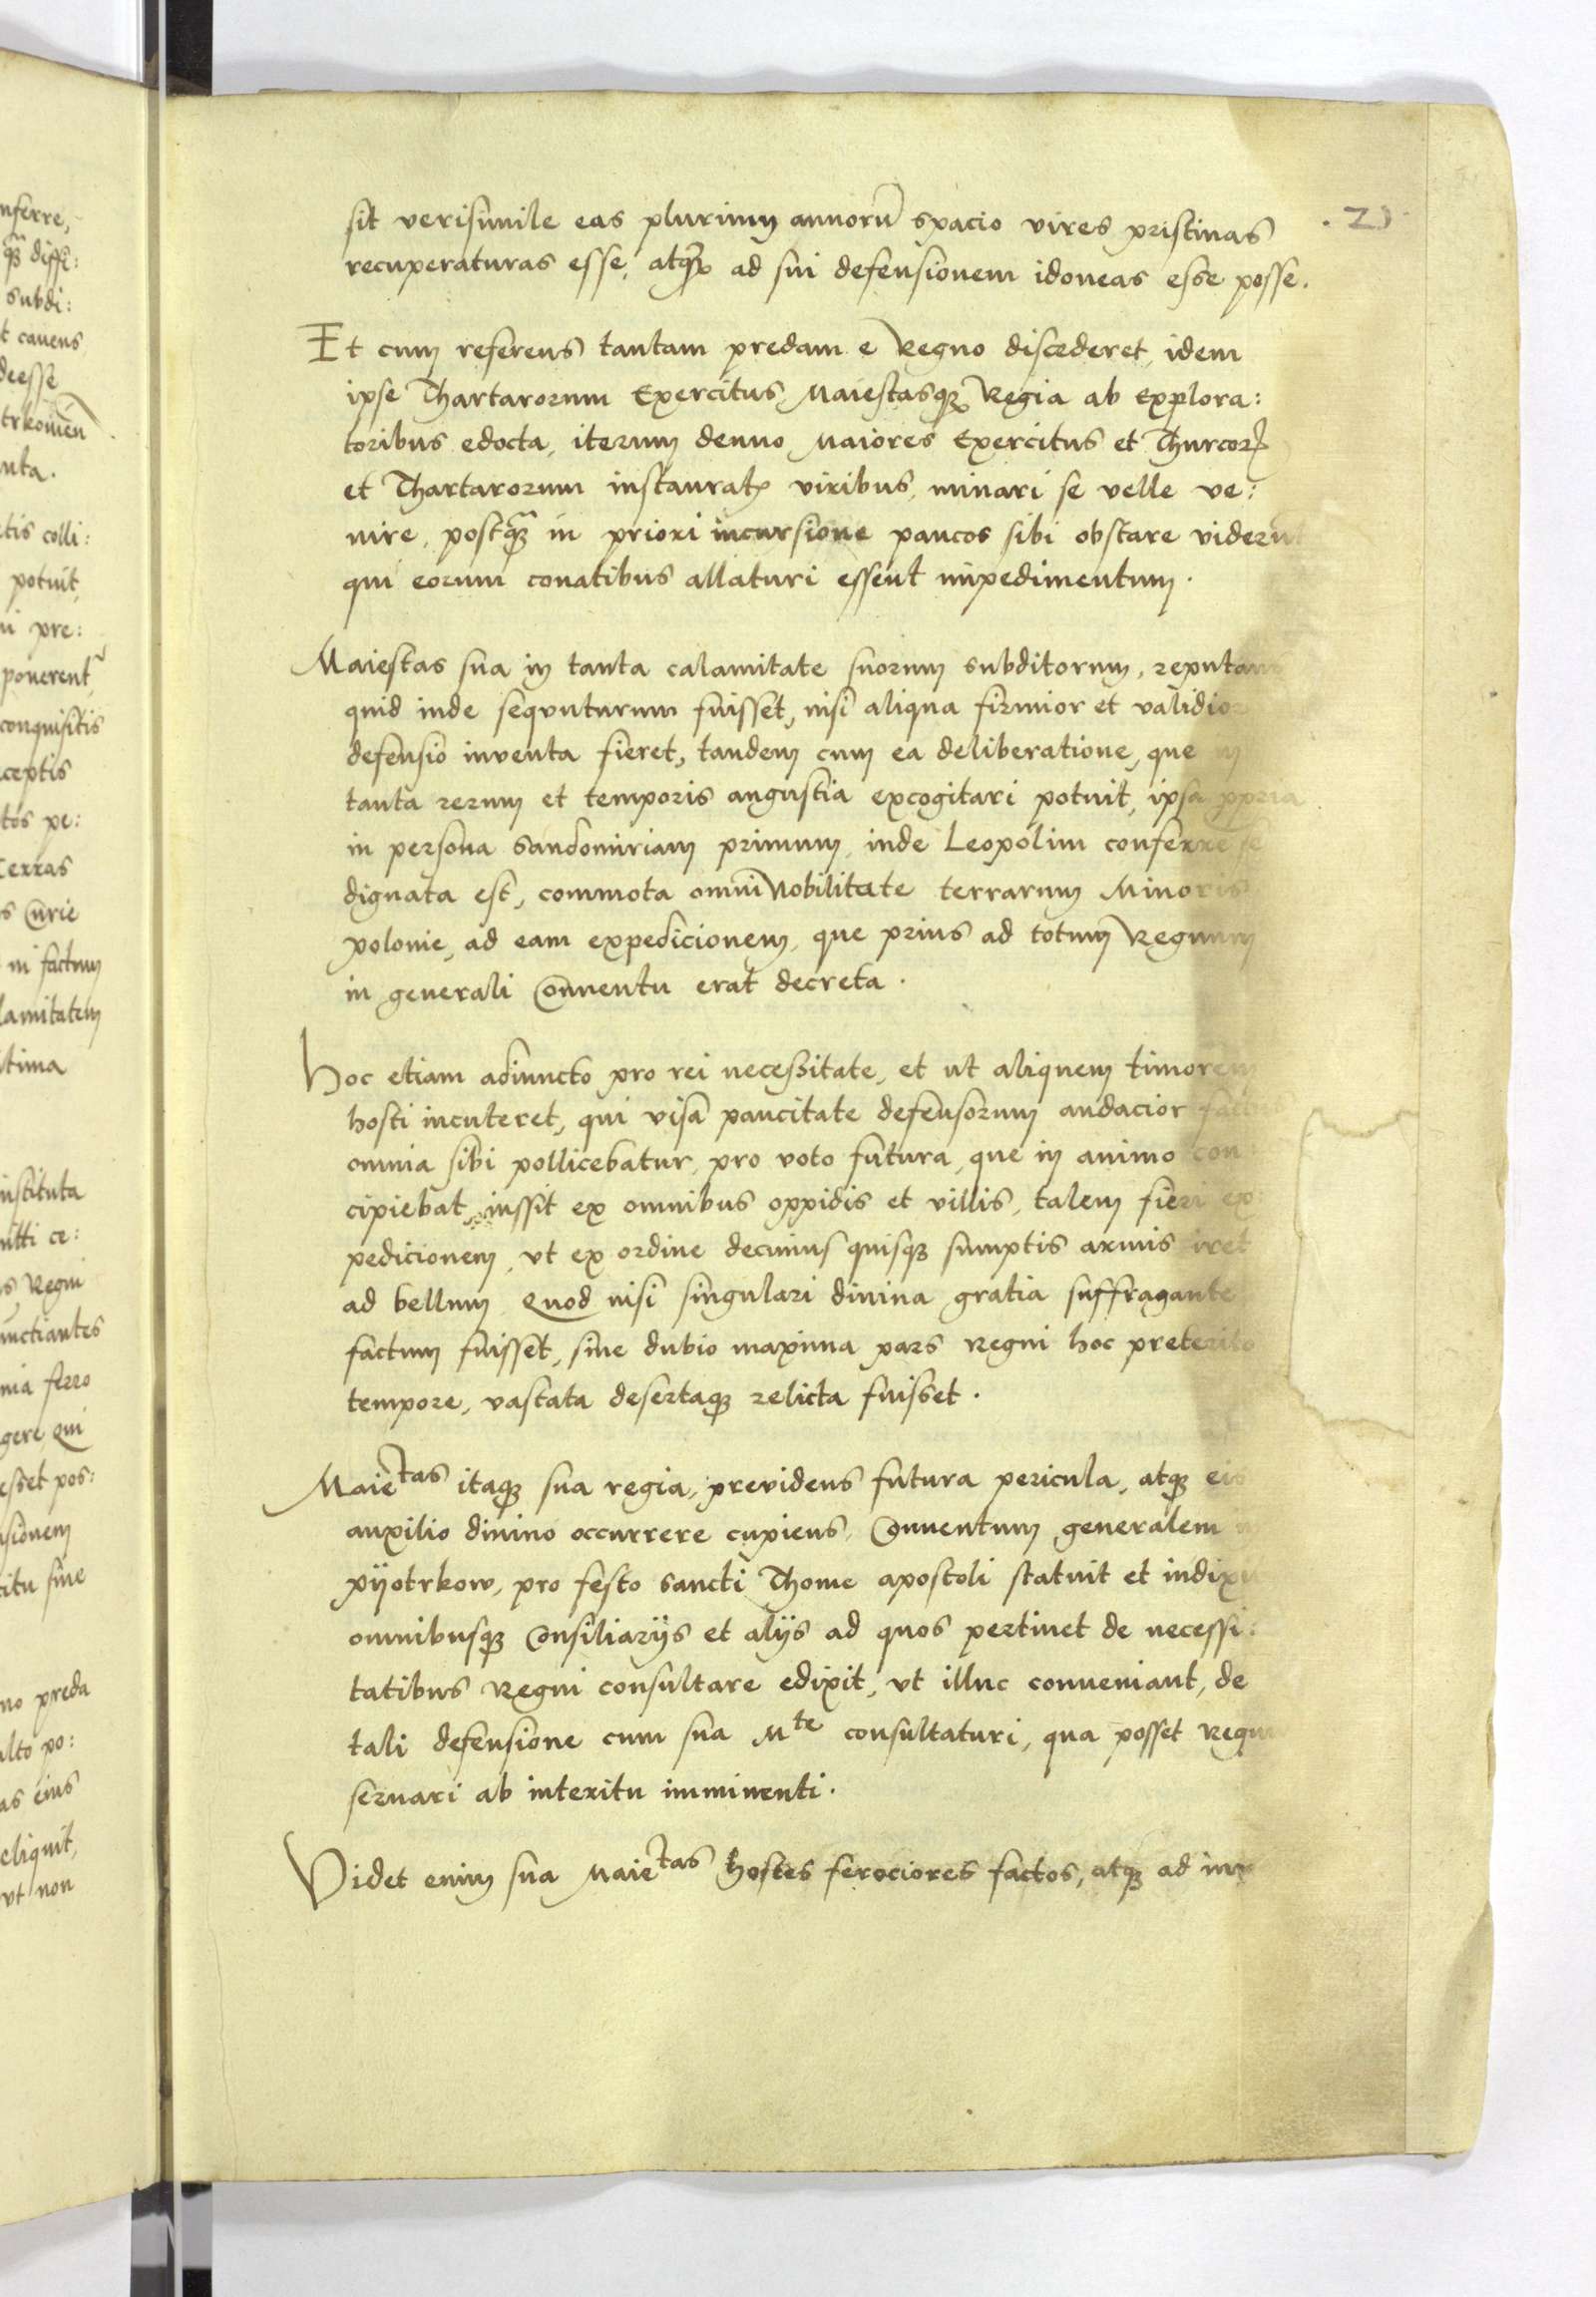 sit verisimile eas plurimy annorū spacio vires pristinas
recuperaturas esse, atqꝫ ad sui defensionem idoneas esse posse.
Et cum referens tantam predam e Regno discederet, idem
ipse Thartarorum Exercitus, Maiestasqꝫ Regia ab Explora:
toribus edocta, iterum denuo Maiores Exercitus et Thurcorꝝ
et Thartarorum instauratis viribus, minari se velle ve:
nire, postqꝫ in priori incursione paucos sibi obstare viderunt
qui eorum conatibus allaturi essent impedimentum.
Maiestas sua in tanta calamitate suorum subditorum, reputans
quid inde sequuturum fuisset, nisi aliqua firmior et validior
defensio inventa fieret, tandem cum ea deliberatione, que in
tanta rerum et temporis angustia excogitari potuit, ipsa ppria
in persona Sandomiriam primum, inde Leopolim conferre se
dignata est, commota omni Nobilitate terrarum Minoris
polonie, ad eam expedicionem, que prius ad totum Regnum
in generali Conuentu erat decreta.
Hoc etiam adiuncto pro rei necessitate, et ut aliquem timorem
hosti incuteret, qui visa paucitate defensorum audacior factus
omnia sibi pollicebatur, pro voto futura, que in animo con:
cipiebat, iussit ex omnibus oppidis et villis, talem fieri ex:
pedicionem, vt ex ordine decimus quisqꝫ sumptis armis iret
ad bellum. Quod nisi singulari diuina gratia suffragante
factum fuisset, sine dubio maxima pars Regni hoc preterito
tempore, vastata desertaqꝫ relicta fuisset.
Maietas itaqꝫ sua regia, previdens futura pericula, atqꝫ eis
auxilio diuino occurrere cupiens, Conuentum generalem in
pÿotrkow, pro festo sancti Thome apostoli statuit et indixit
omnibusqꝫ Consiliarÿs et alÿs ad quos pertinet de necessi:
tatibus Regni consultare edixit, vt illuc conueniant, de
tali defensione cum sua Mte consultaturi, qua posset
seruari ab interitu imminenti.
Videt enim sua Maietas hostes ferociores factos, atqꝫ ad